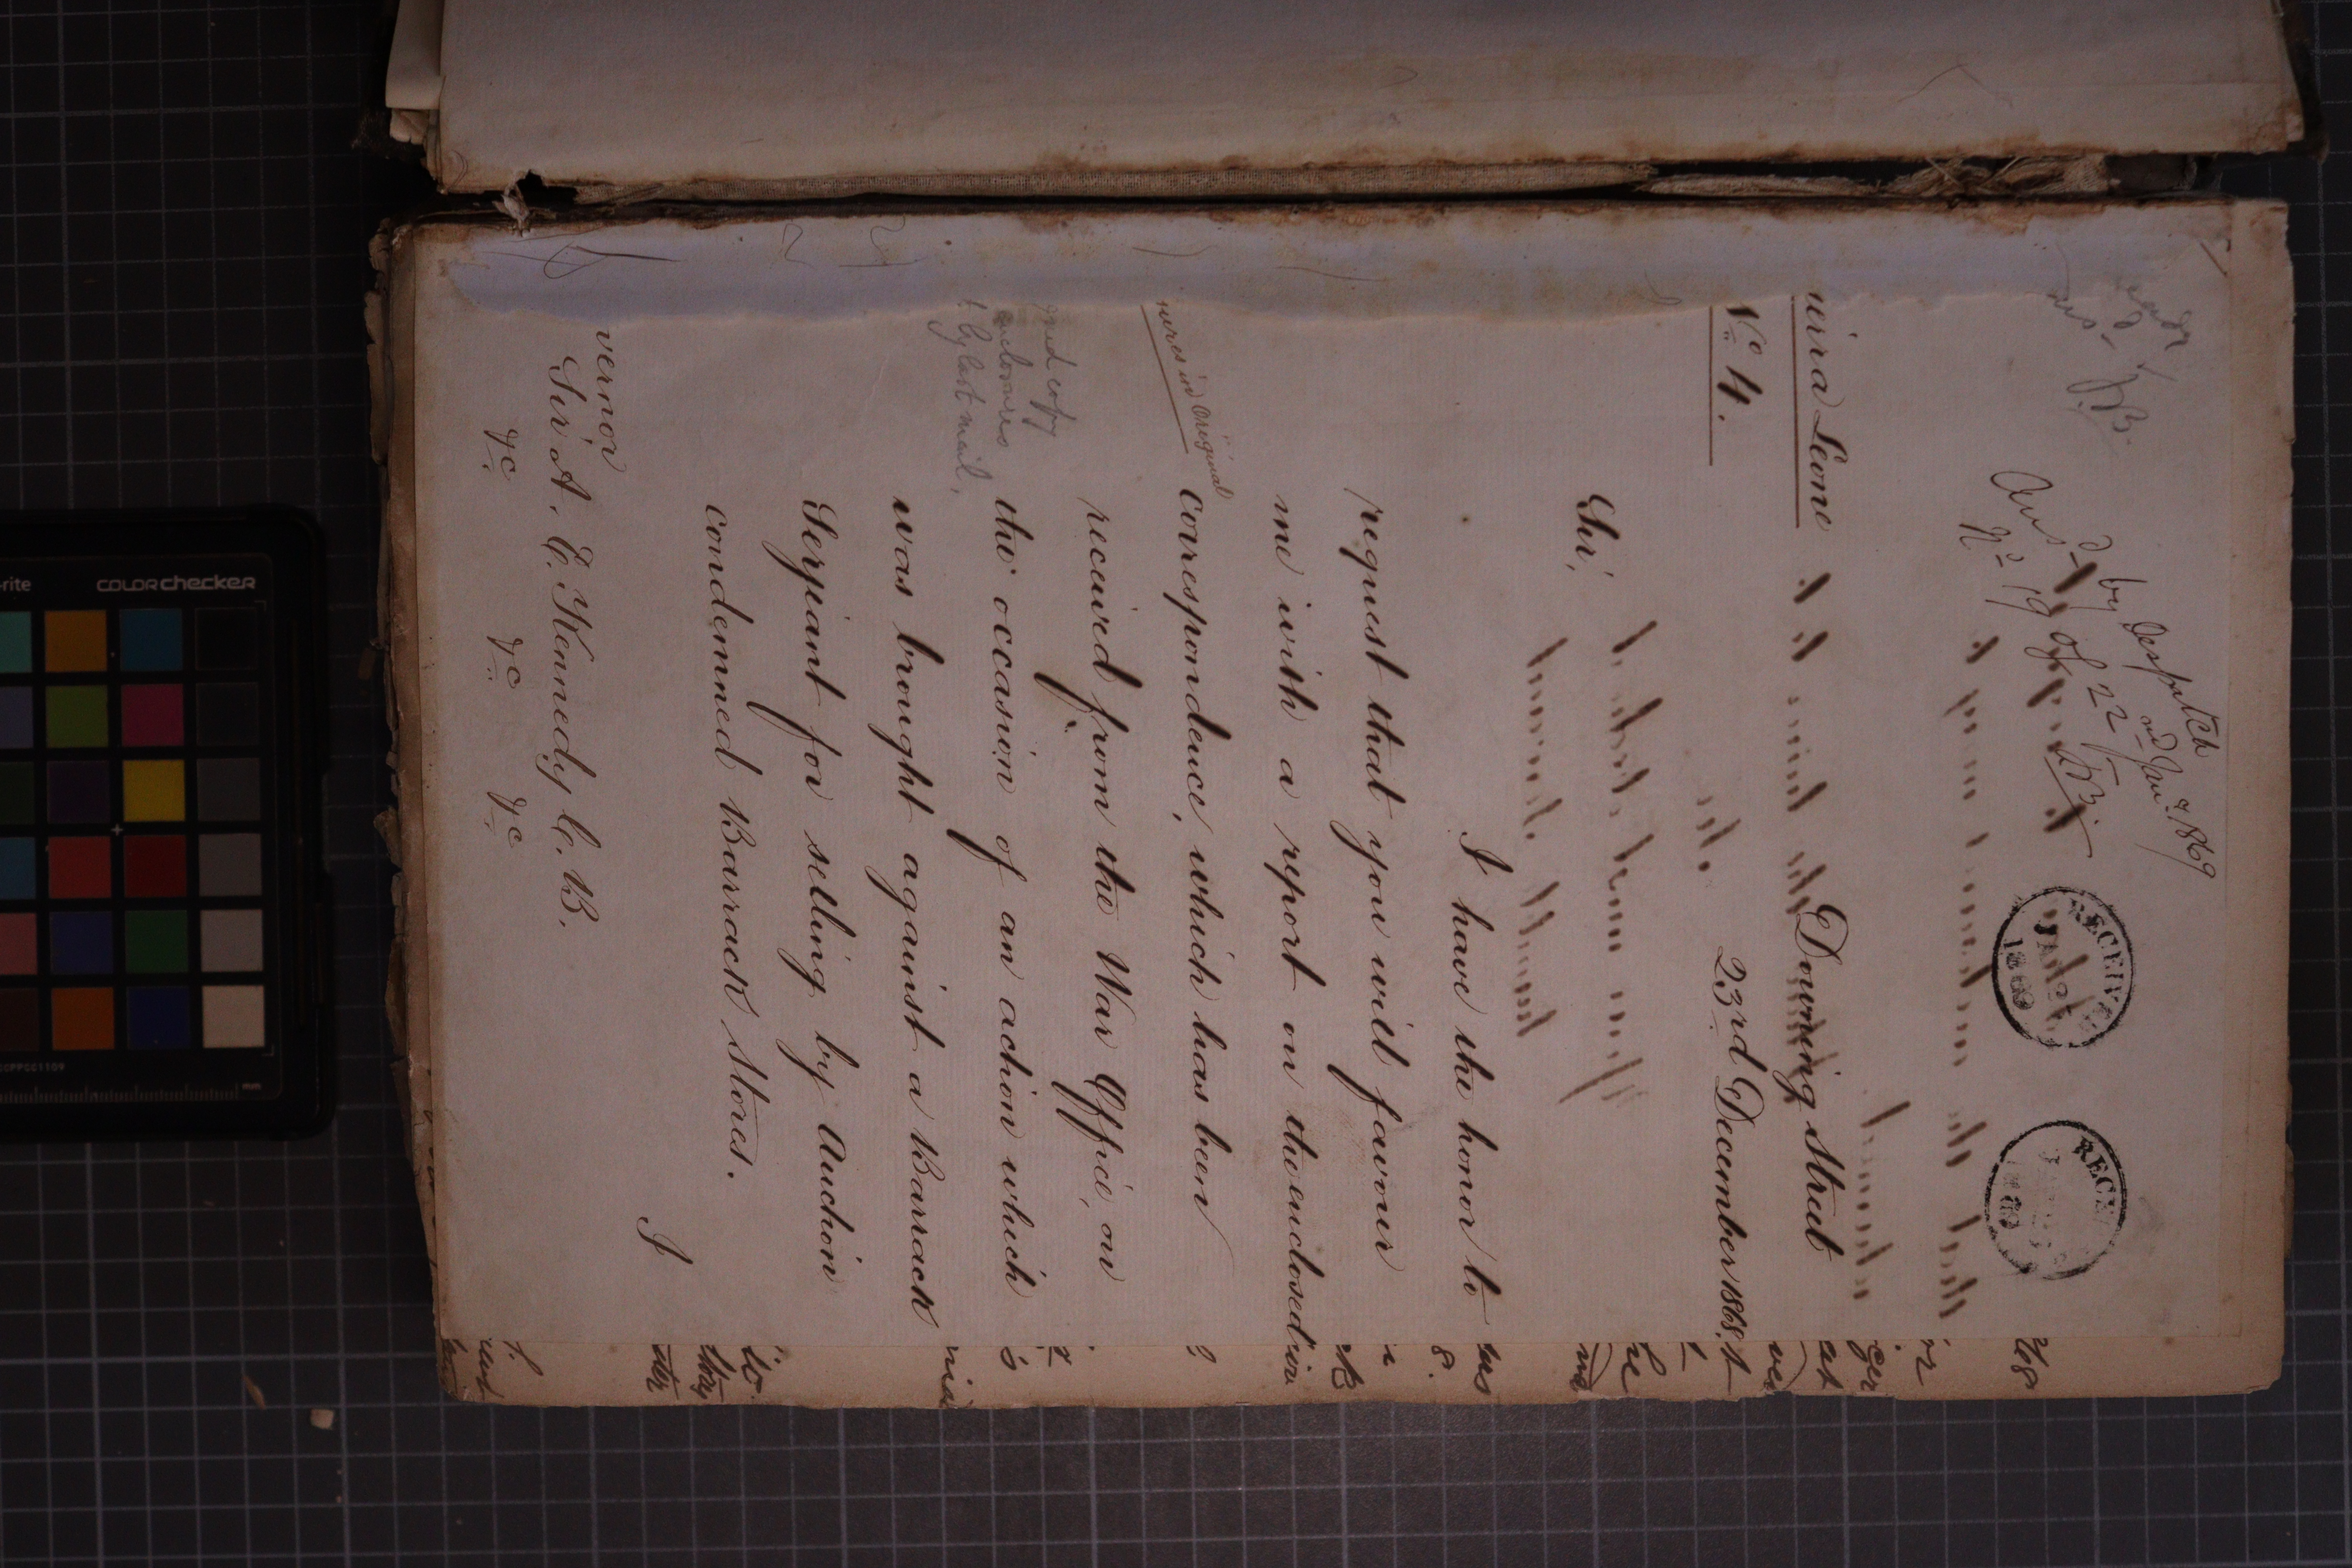 Ansd by Despatch
No 19 of 22nd Jany. 1869
RECEIVED
JAN
1869
RECE
Downing Street
23rd December 1868.
ierra Leone
No 4.
Sir,
I have the honor to
request that you will favour
me with a report on the enclosed
correspondence, which has been
ures in Original
received from the War Office, on
the occasion of an action which
and copy
enclosures
t by last mail.
was brought against a Barrack
Serjeant for selling by Auction
condemned Barrack Stores.
I
vernor
Sir A. E. Kennedy C.B.
&c &c &c
COLORchecker